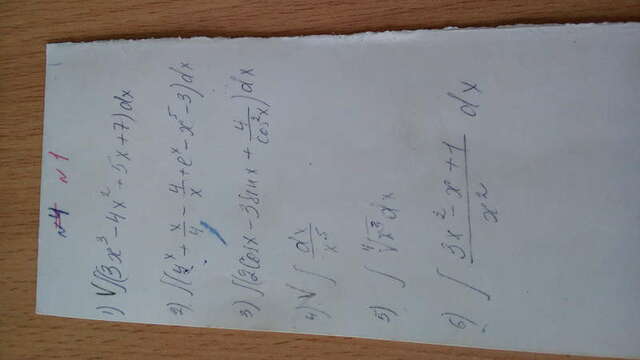 №4 №1
1) √∫(3x³-4x²+5x+7)dx
2) ∫(4ˣ+x/4-4/x+eˣ-x⁵-3)dx
3) ∫(2cosx-3sinx+4/cos²x)dx
4) √∫dx/x⁵
5) ∫⁴√x³dx
6) ∫(3x²-x+1)/x² dx